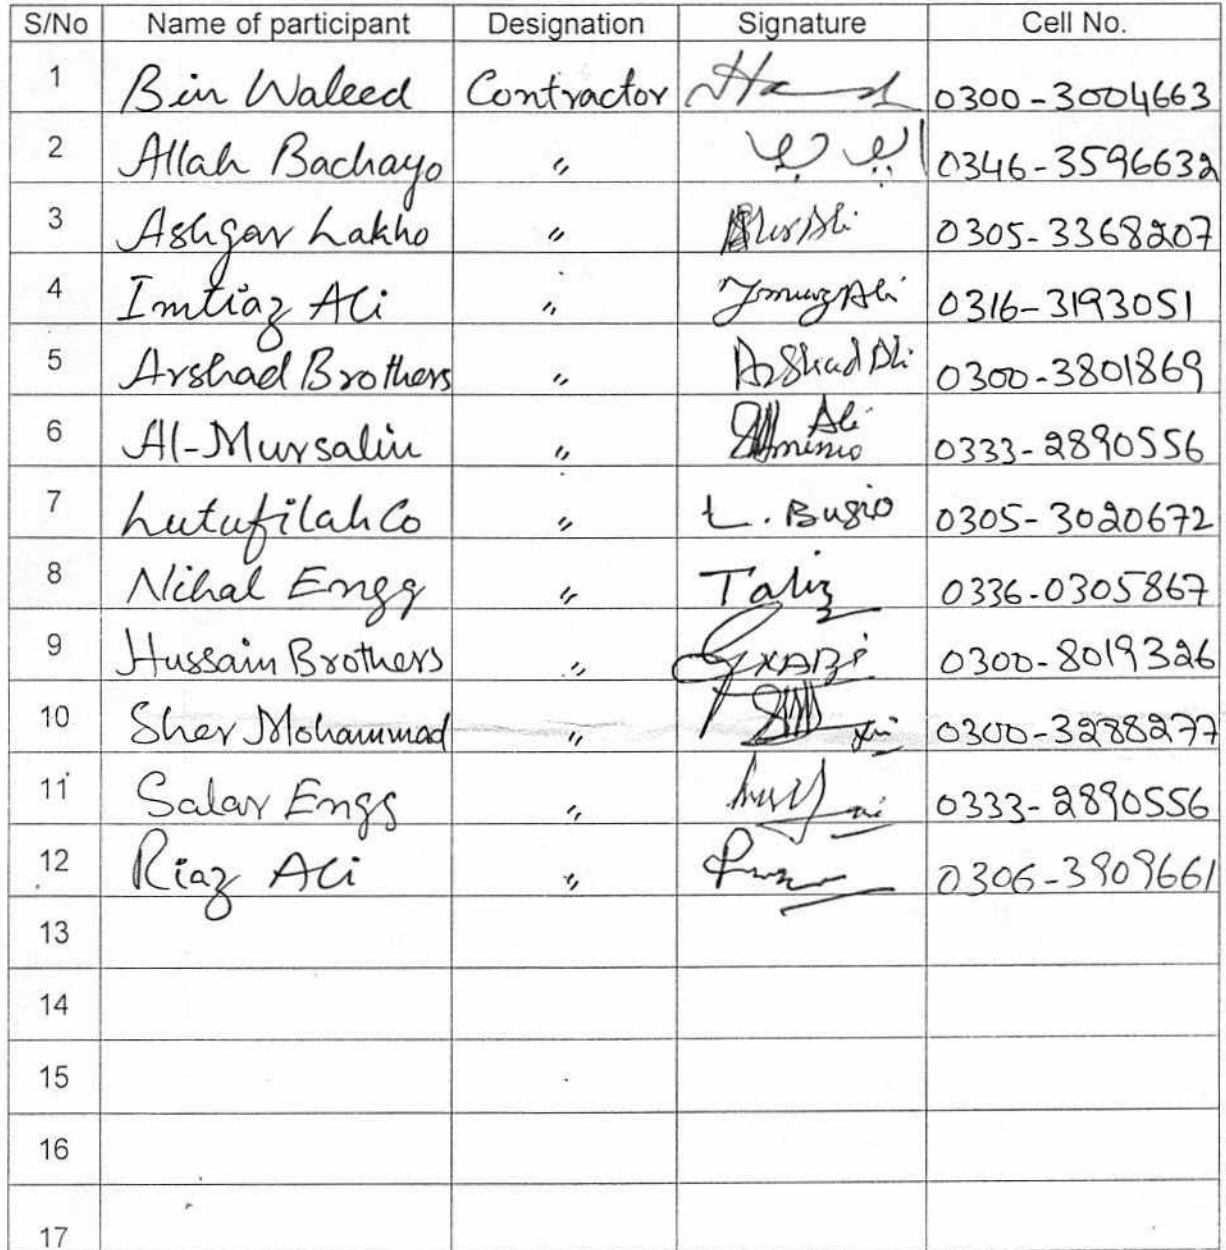 S/No Name of participant Designation Signature Cell No.
1 Bin Waleed Contractor 0300-3004663
2 Allah Bachayo " 0346-3596632
3 Ashgar Lakho " 0305-3368207
4 Imtiaz Ali " Imtiaz Ali 0316-3193051
5 Arshad Brothers " Arshad Ali 0300-3801869
6 Al-Mursalin " Ali 0333-2890556
7 Lutufilah Co " L. Bugio 0305-3020672
8 Nihal Engg " 0336-0305867
9 Hussain Brothers " 0300-8019326
10 Sher Mohammad " 0300-3288277
11 Salar Engg " 0333-2890556
12 Riaz Ali " 0306-3909661
13
14
15
16
17